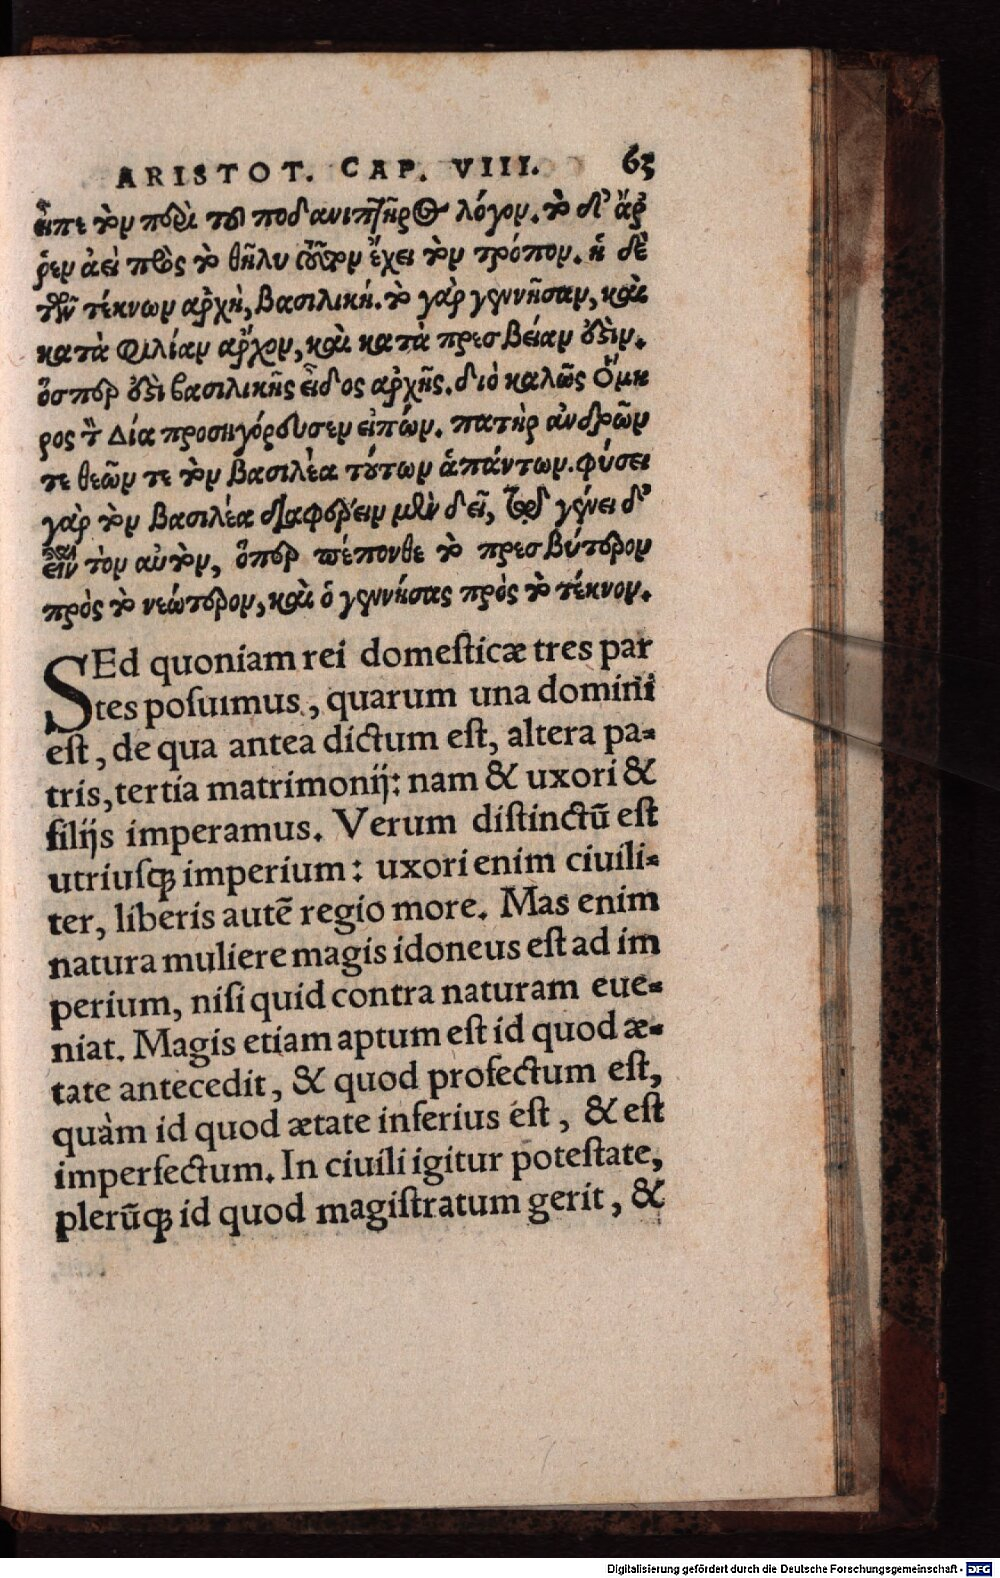 ARISTOT. CAP. VIII. 65
εἶπε τὸν περὶ τοῦ ποδανιπτῆρος λόγον. τὸ δ' ἄρ
ρεν ἀεὶ πρὸς τὸ θῆλυ τοῦτον ἔχει τὸν τρόπον. ἡ δὲ
τῶν τέκνων ἀρχὴ, βασιλική. τὸ γὰρ γεννῆσαν, καὶ
κατὰ φιλίαν ἄρχον, καὶ κατὰ πρεσβείαν ἐστὶν.
ὅσπερ ἐστὶ βασιλικῆς εἶδος ἀρχῆς. διὸ καλῶς Ὅμη
ρος τ Δία προσηγόρευσεν εἰπών. πατὴρ ἀνδρῶν
τε θεῶν τε τὸν βασιλέα τούτων ἁπάντων. φύσει
γὰρ τὸν βασιλέα διαφέρειν μὲν δεῖ, τῷ γένει δ'
εἶναι τὸν αὐτὸν, ὅπερ πέπονθε τὸ πρεσβύτερον
πρὸς τὸ νεώτερον, καὶ ὁ γεννήσας πρὸς τὸ τέκνον.
SEd quoniam rei domesticæ tres par
tes posuimus, quarum una domini
est, de qua antea dictum est, altera pa-
tris, tertia matrimonij: nam & uxori &
filijs imperamus. Verum distinctũ est
utriusq́; imperium: uxori enim ciuili-
ter, liberis autẽ regio more. Mas enim
natura muliere magis idoneus est ad im
perium, nisi quid contra naturam eue-
niat. Magis etiam aptum est id quod æ-
tate antecedit, & quod profectum est,
quàm id quod ætate inferius est, & est
imperfectum. In ciuili igitur potestate,
plerũq; id quod magistratum gerit, &
Digitalisierung gefördert durch die Deutsche Forschungsgemeinschaft - DFG